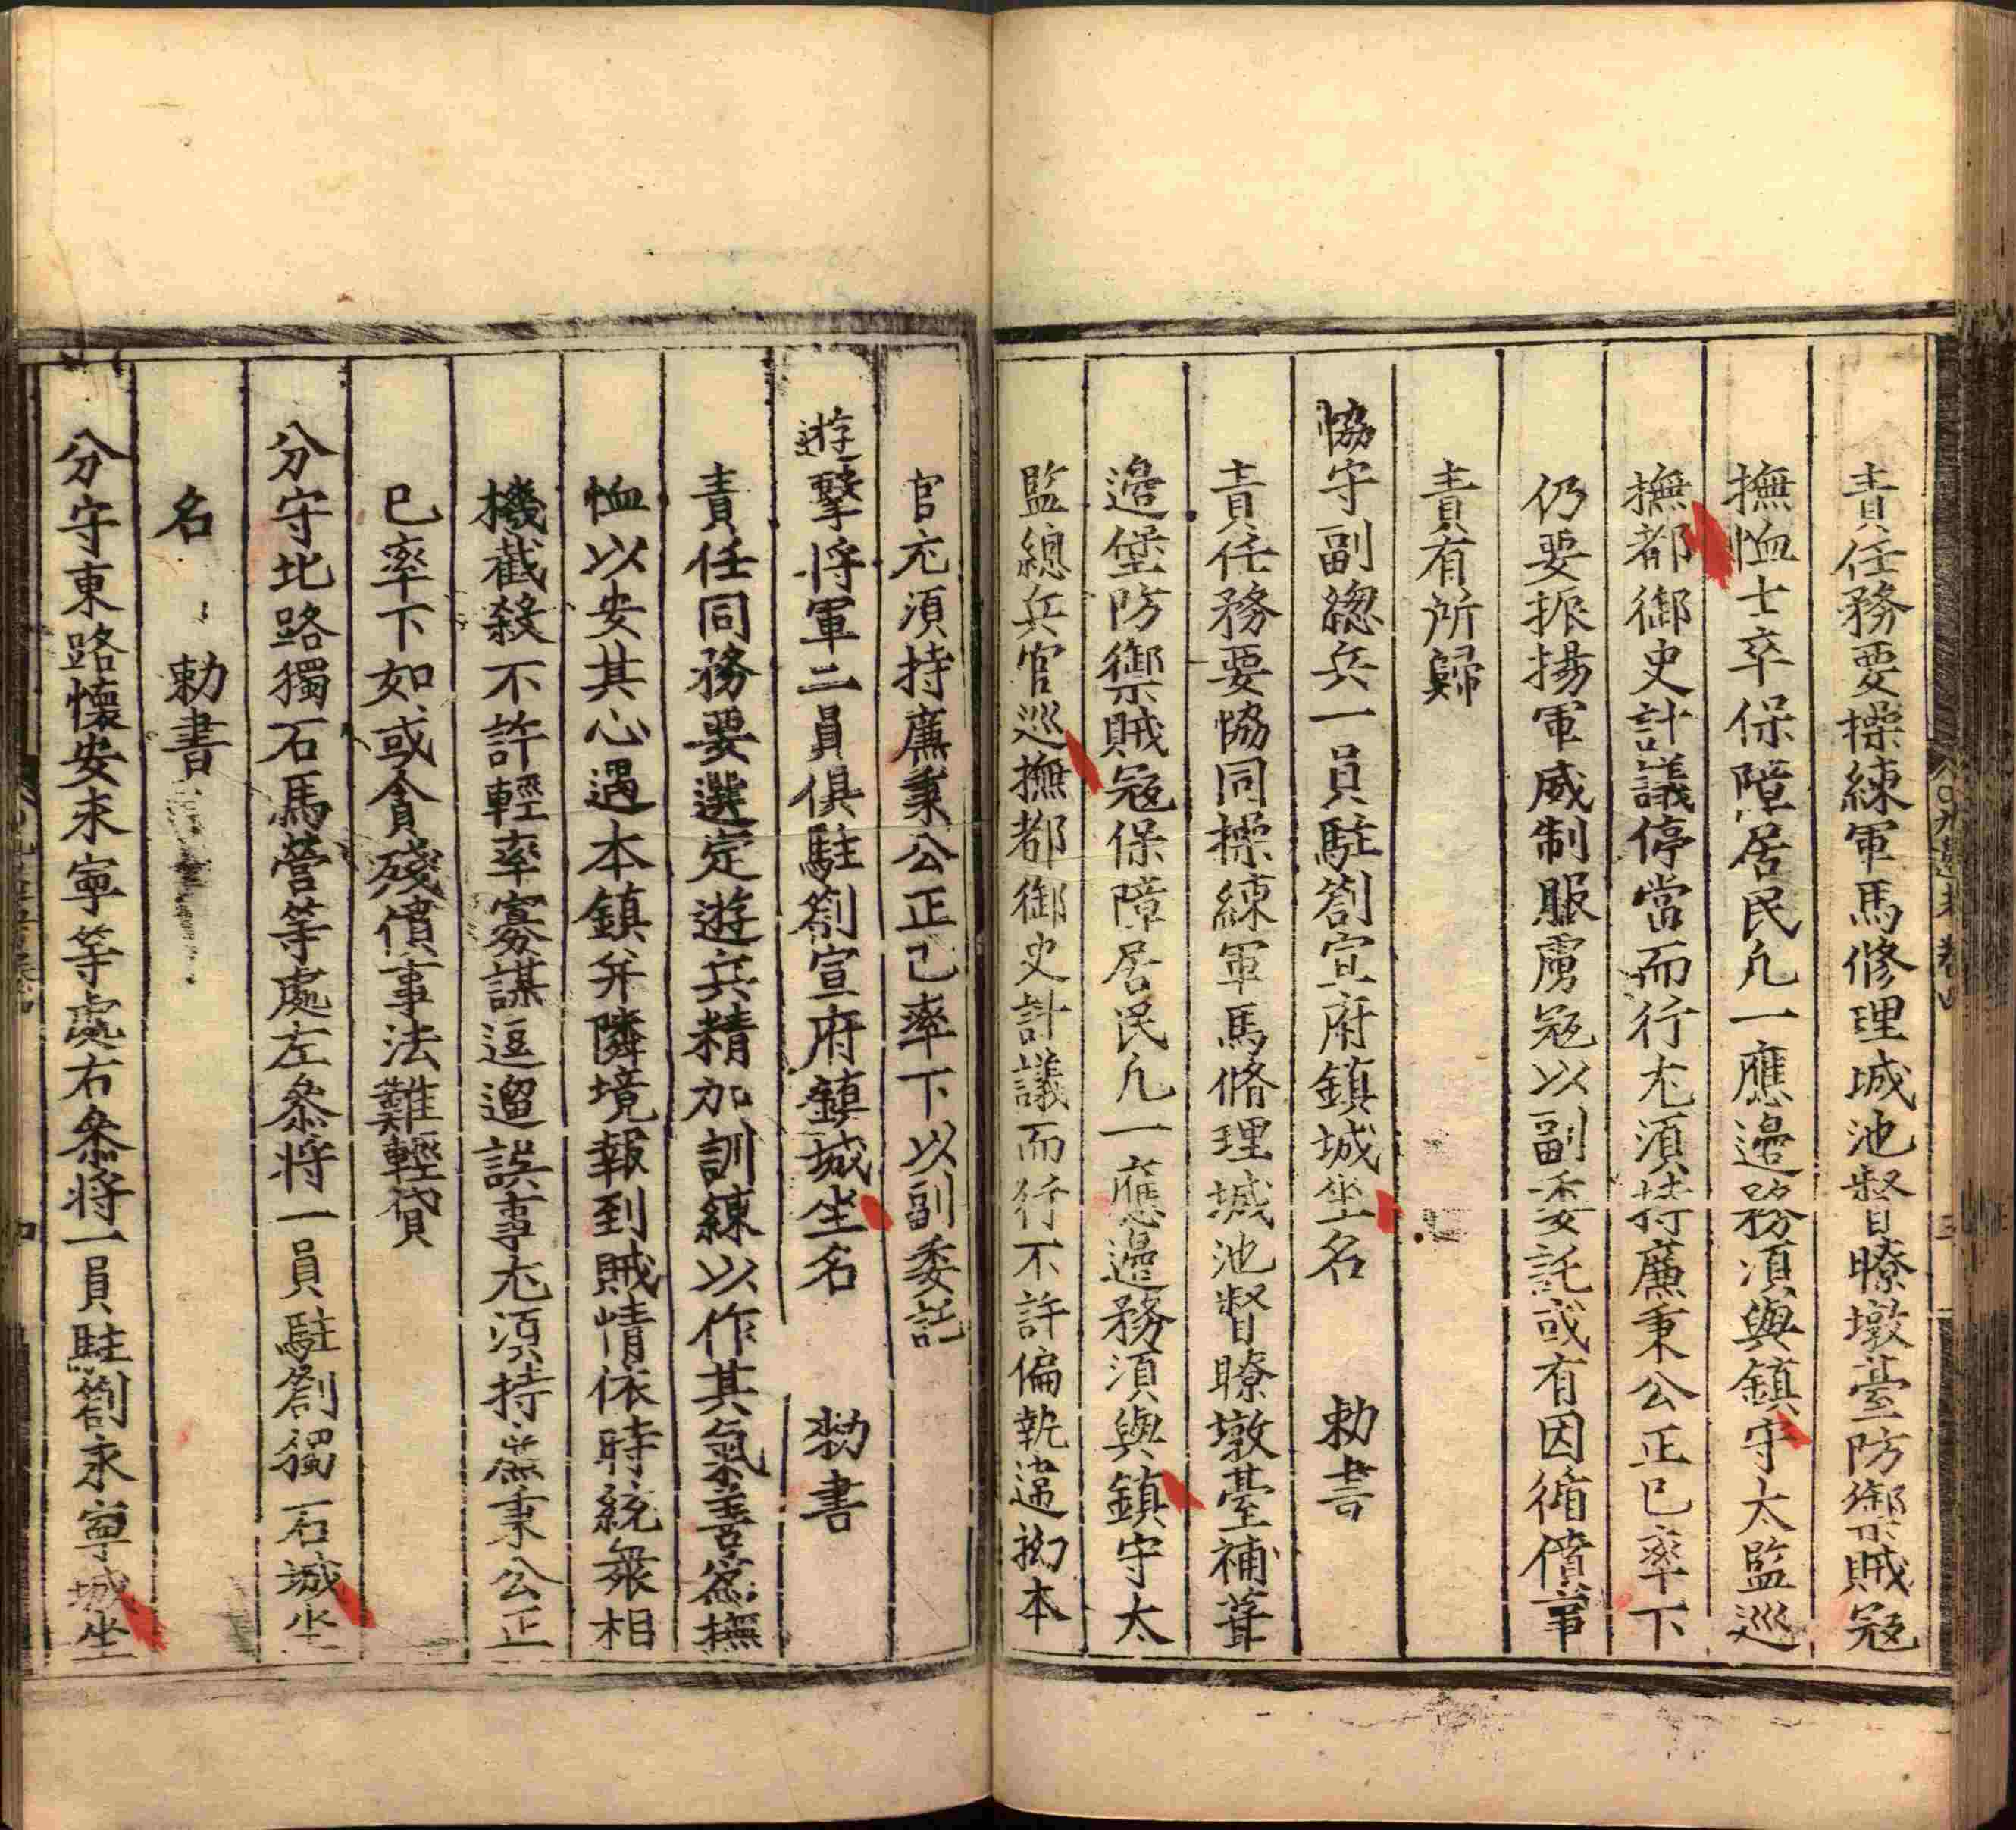 責任務要操練軍馬修理城池督瞭墩臺防禦賊寇
撫恤士卒保障居民凢一應邉務湏與鎮守太監巡
撫都御史計議停當而行尤湏持廉秉公正巳率下
仍要振揚軍威制服虜寇以副委託或有因循僨事
責有所歸
恊守副緫兵一員駐劄宣府鎮城坐名　勅書
責任務要恊同操練軍馬脩理城池督瞭墩臺補葺
邉堡防禦賊寇保障居民凢一應邉務湏與鎮守太
監總兵官巡撫都御史計議而行不許偏執違拗本
官尤湏持廉秉公正己率下以副委託
遊擊将軍二員俱駐劄宣府鎮城坐名　勑書
責任同務要選定遊兵精加訓練以作其氣善爲撫
恤以安其心遇本鎮并隣境報到賊情依時統衆相
機截殺不許輕率寡謀逗遛誤事尤湏持廉秉公正
巳率下如或貪殘僨事法難輕貸
分守北路獨石馬營等處左叅将一員駐劄獨石城坐
名　勅書
分守東路懷安永寧等處右叅将一員駐劄永寧城坐